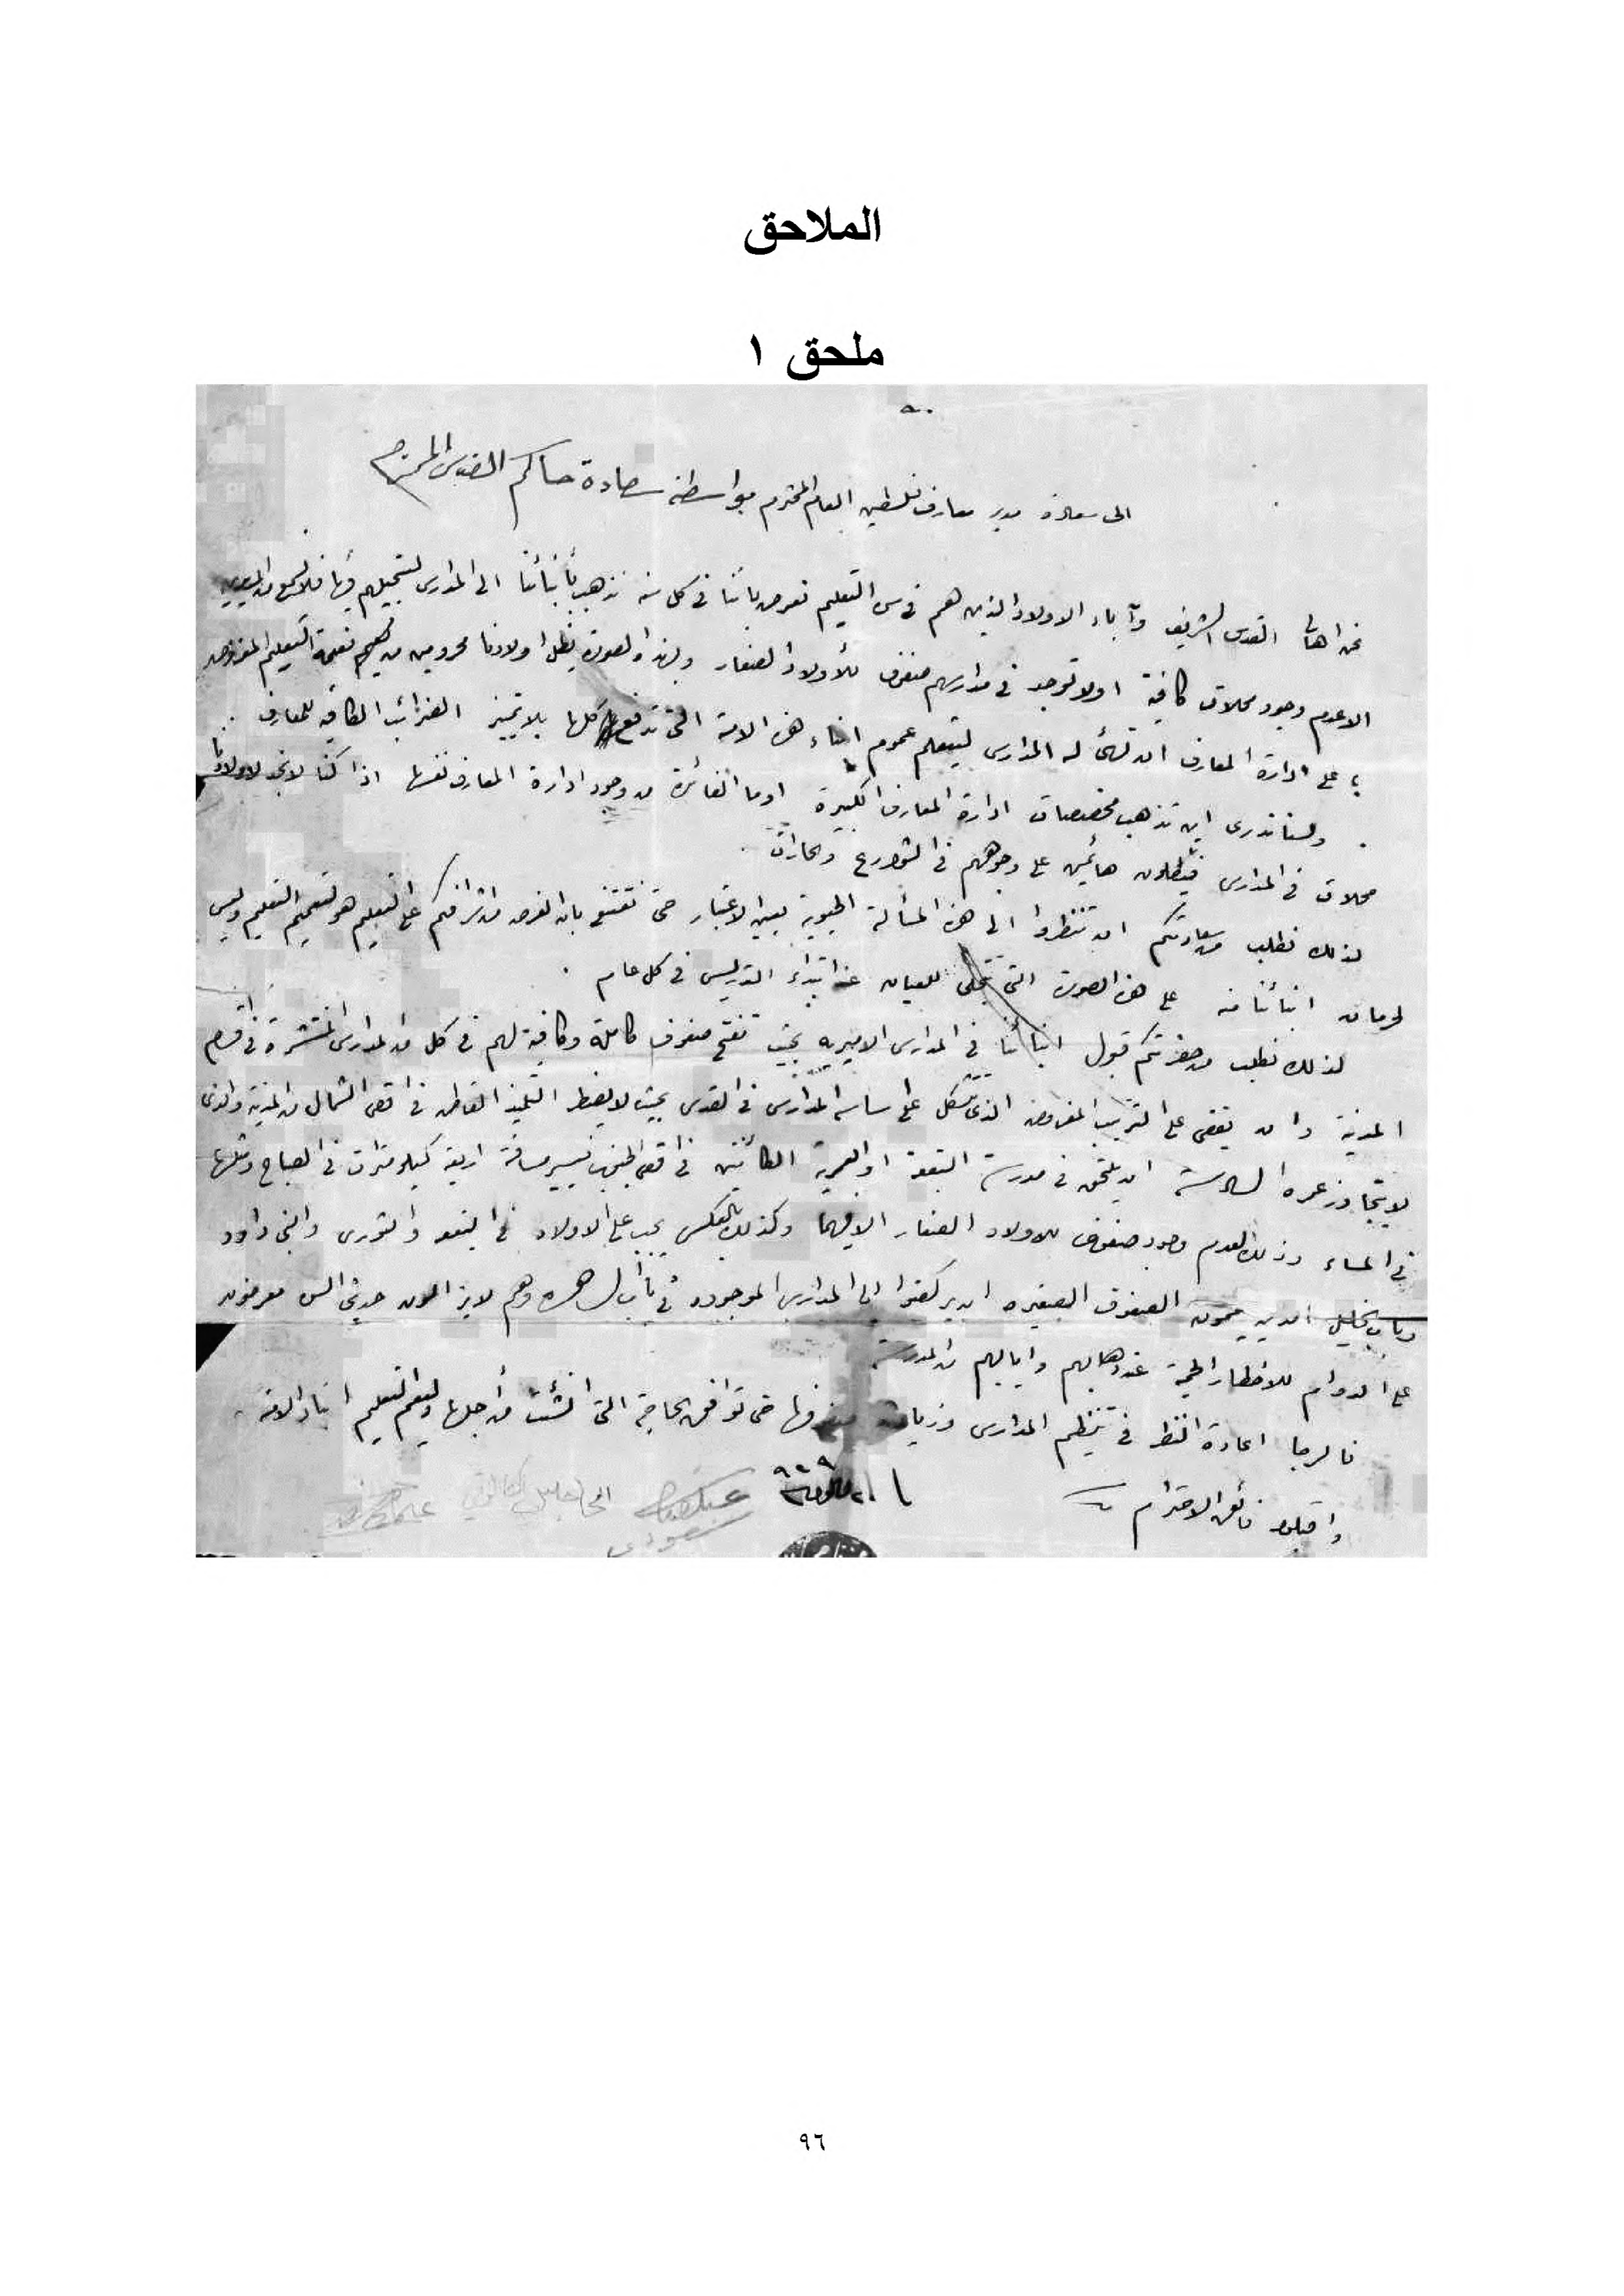 الملاحق
ملحق ١
الى سعادة مدير معارف فلسطين العام المحترم بواسطة سعادة حاكم القدس المحترم
نحن اهالي القدس الشريف وآباء الاولاد الذين هم في سن التعليم نعرض باننا في كل سنة نذهب بأبنائنا الى المدارس لتسجيلهم فيها فلا نسمع من المديرين
الا عدم وجود محلات كافية او لا توجد في مدارسهم صفوف للأولاد الصغار وبهذه الصورة يظل اولادنا محرومين من نعمة التعليم المفروضه
على ادارة المعارف ان تهيئ له المدارس ليتعلم عموم ابناء هذه الامة التي تدفع كلها بلا تمييز الضرائب الكافية للمعارف .
ولسنا ندري اين تذهب مخصصات ادارة المعارف الكبيرة او ما الفائدة من وجود ادارة المعارف نفسها اذا كنا لا نجد لاولادنا
محلات في المدارس فيظلون هائمين على وجوههم في الشوارع والحارات .
لذلك نطلب من سعادتكم ان تنظروا الى هذه المسألة الحيوية بعين الاعتبار حتى نقتنع بان الغرض من اشرافكم على التعليم هو تعميم التعليم وليس
لحرمان ابنائنا منه على هذه الصورة التي تتجلى للعيان عند ابتداء التدريس في كل عام .
لذلك نطلب من حضرتكم قبول ابنائنا في المدارس الاميرية بحيث تفتح صفوف كاملة وكافية لهم في كل من المدارس المنتشرة في اقسام
المدينة وان يقضى على الترتيب المفروض الذي تتشكل على اساسه المدارس في القدس بحيث لا يضطر التلميذ القاطن في اقصى الشمال من المدينة والذي
لا يتجاوز عمره السادسة ان يلتحق في مدرسة البقعة او العمرية الكائنتين في اقصى الجنوب فيسير مسافة اربعة كيلومترات في الصباح ومثلها
في المساء وذلك لعدم وجود صفوف للاولاد الصغار الا فيهما وكذلك بالعكس يجب على الاولاد في البقعه والثوري والنبي داود
وباب الخليل الذين يتممون الصفوف الصغيره ان يركضوا الى المدارس الموجوده في باب الساهره وهم لا يزالون حديثي السن معرضون
على الدوام للاخطار الجمة عند ذهابهم وايابهم من المدرسة
فالرجا اعادة النظر في تنظيم المدارس وزيادة صفوفها حتى توافق الحاجة التي انشئت من أجلها وليعم التعليم ابناء الامة .
واقبلوا فائق الاحترام
٩٦